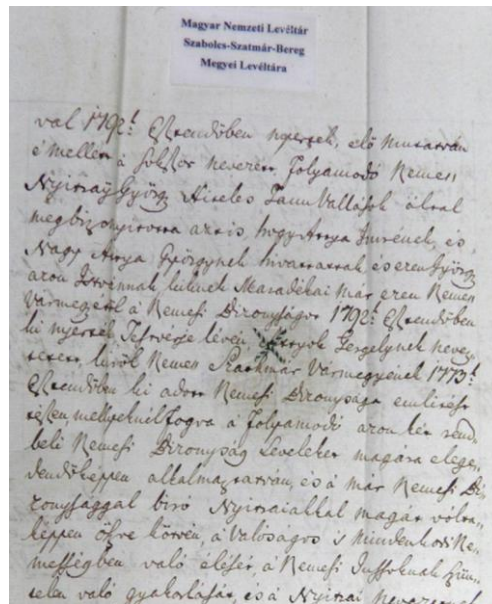 Magyar Nemzeti Levéltár
Szabolcs-Szatmár-Bereg
Megyei Levéltára
val 1792. Esztendőben nyertek, elő mutatván
é mellett a sokszor nevezett Folyamodó Nemes
Nyirtzaÿ György Hiteles Tanu Vallások által
megbizonyította azt is, hogy Attya Imrének, és
Nagy Attya Györgynek hivattattak és ezen György
azon Istvánnak kiknek Maradékai már ezen Nemes
Vármegyétől a Nemesi Bizonyságot 1792. Esztendőben
ki nyerték, Testvérje lévén, Gergelynek nevez-
tetett, kiről Nemes Szathmár Vármegyének 1773.
Esztendőben ki adott Nemesi Bizonysága emlitést
tészen, mellyeknél fogva a Folyamodó azon két rend
béli Nemesi Bizonyság Leveleket magára elege-
dendőképpen alkalmaztatván, és á már Nemesi Bi-
zonysággal biró Nyirtzaiakkal magát vólta-
képpen öszve kötvén, a Valóságos 's mindenkori Ne-
mességben való élését, a Nemesi Jussoknak szün-
telen való gyakorlását, és á Nyirtzai